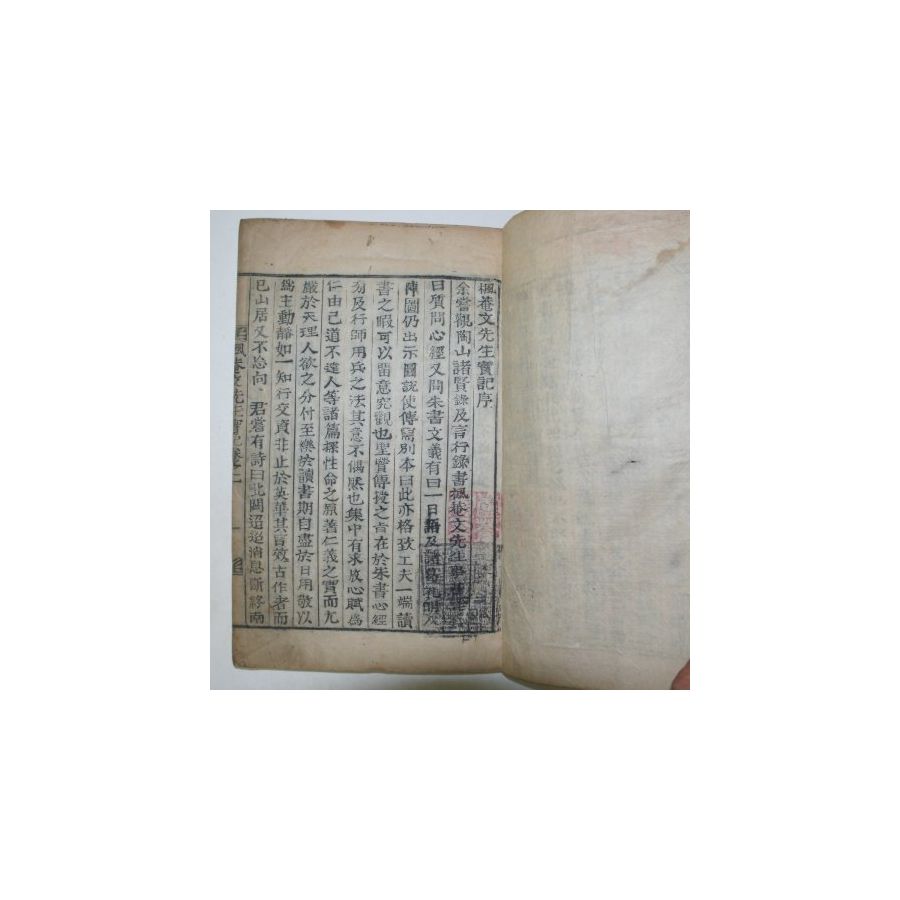 楓菴文先生實記序
余嘗觀陶山諸賢錄及言行錄書楓菴文先生
曰質問心經又問朱書文義有曰一日語及諸葛孔明
陣圖仍出示圖說使傳寫別本曰此亦格致工夫一端讀
書之暇可以留意究觀也聖賢傳授之旨在於朱書心經
及行師用兵之法其意不偶然也集中有求放心賦爲
仁由己道不遠人等諸篇探性命之原著仁義之實而尤
嚴於天理人欲之分付至樂於讀書期自盡於日用敬以
爲主動靜如一知行交資非止於英華其言效古作者而
已山居又不忘向 君嘗有詩曰北闕迢迢消息斷終南
楓菴文先生實記卷之一